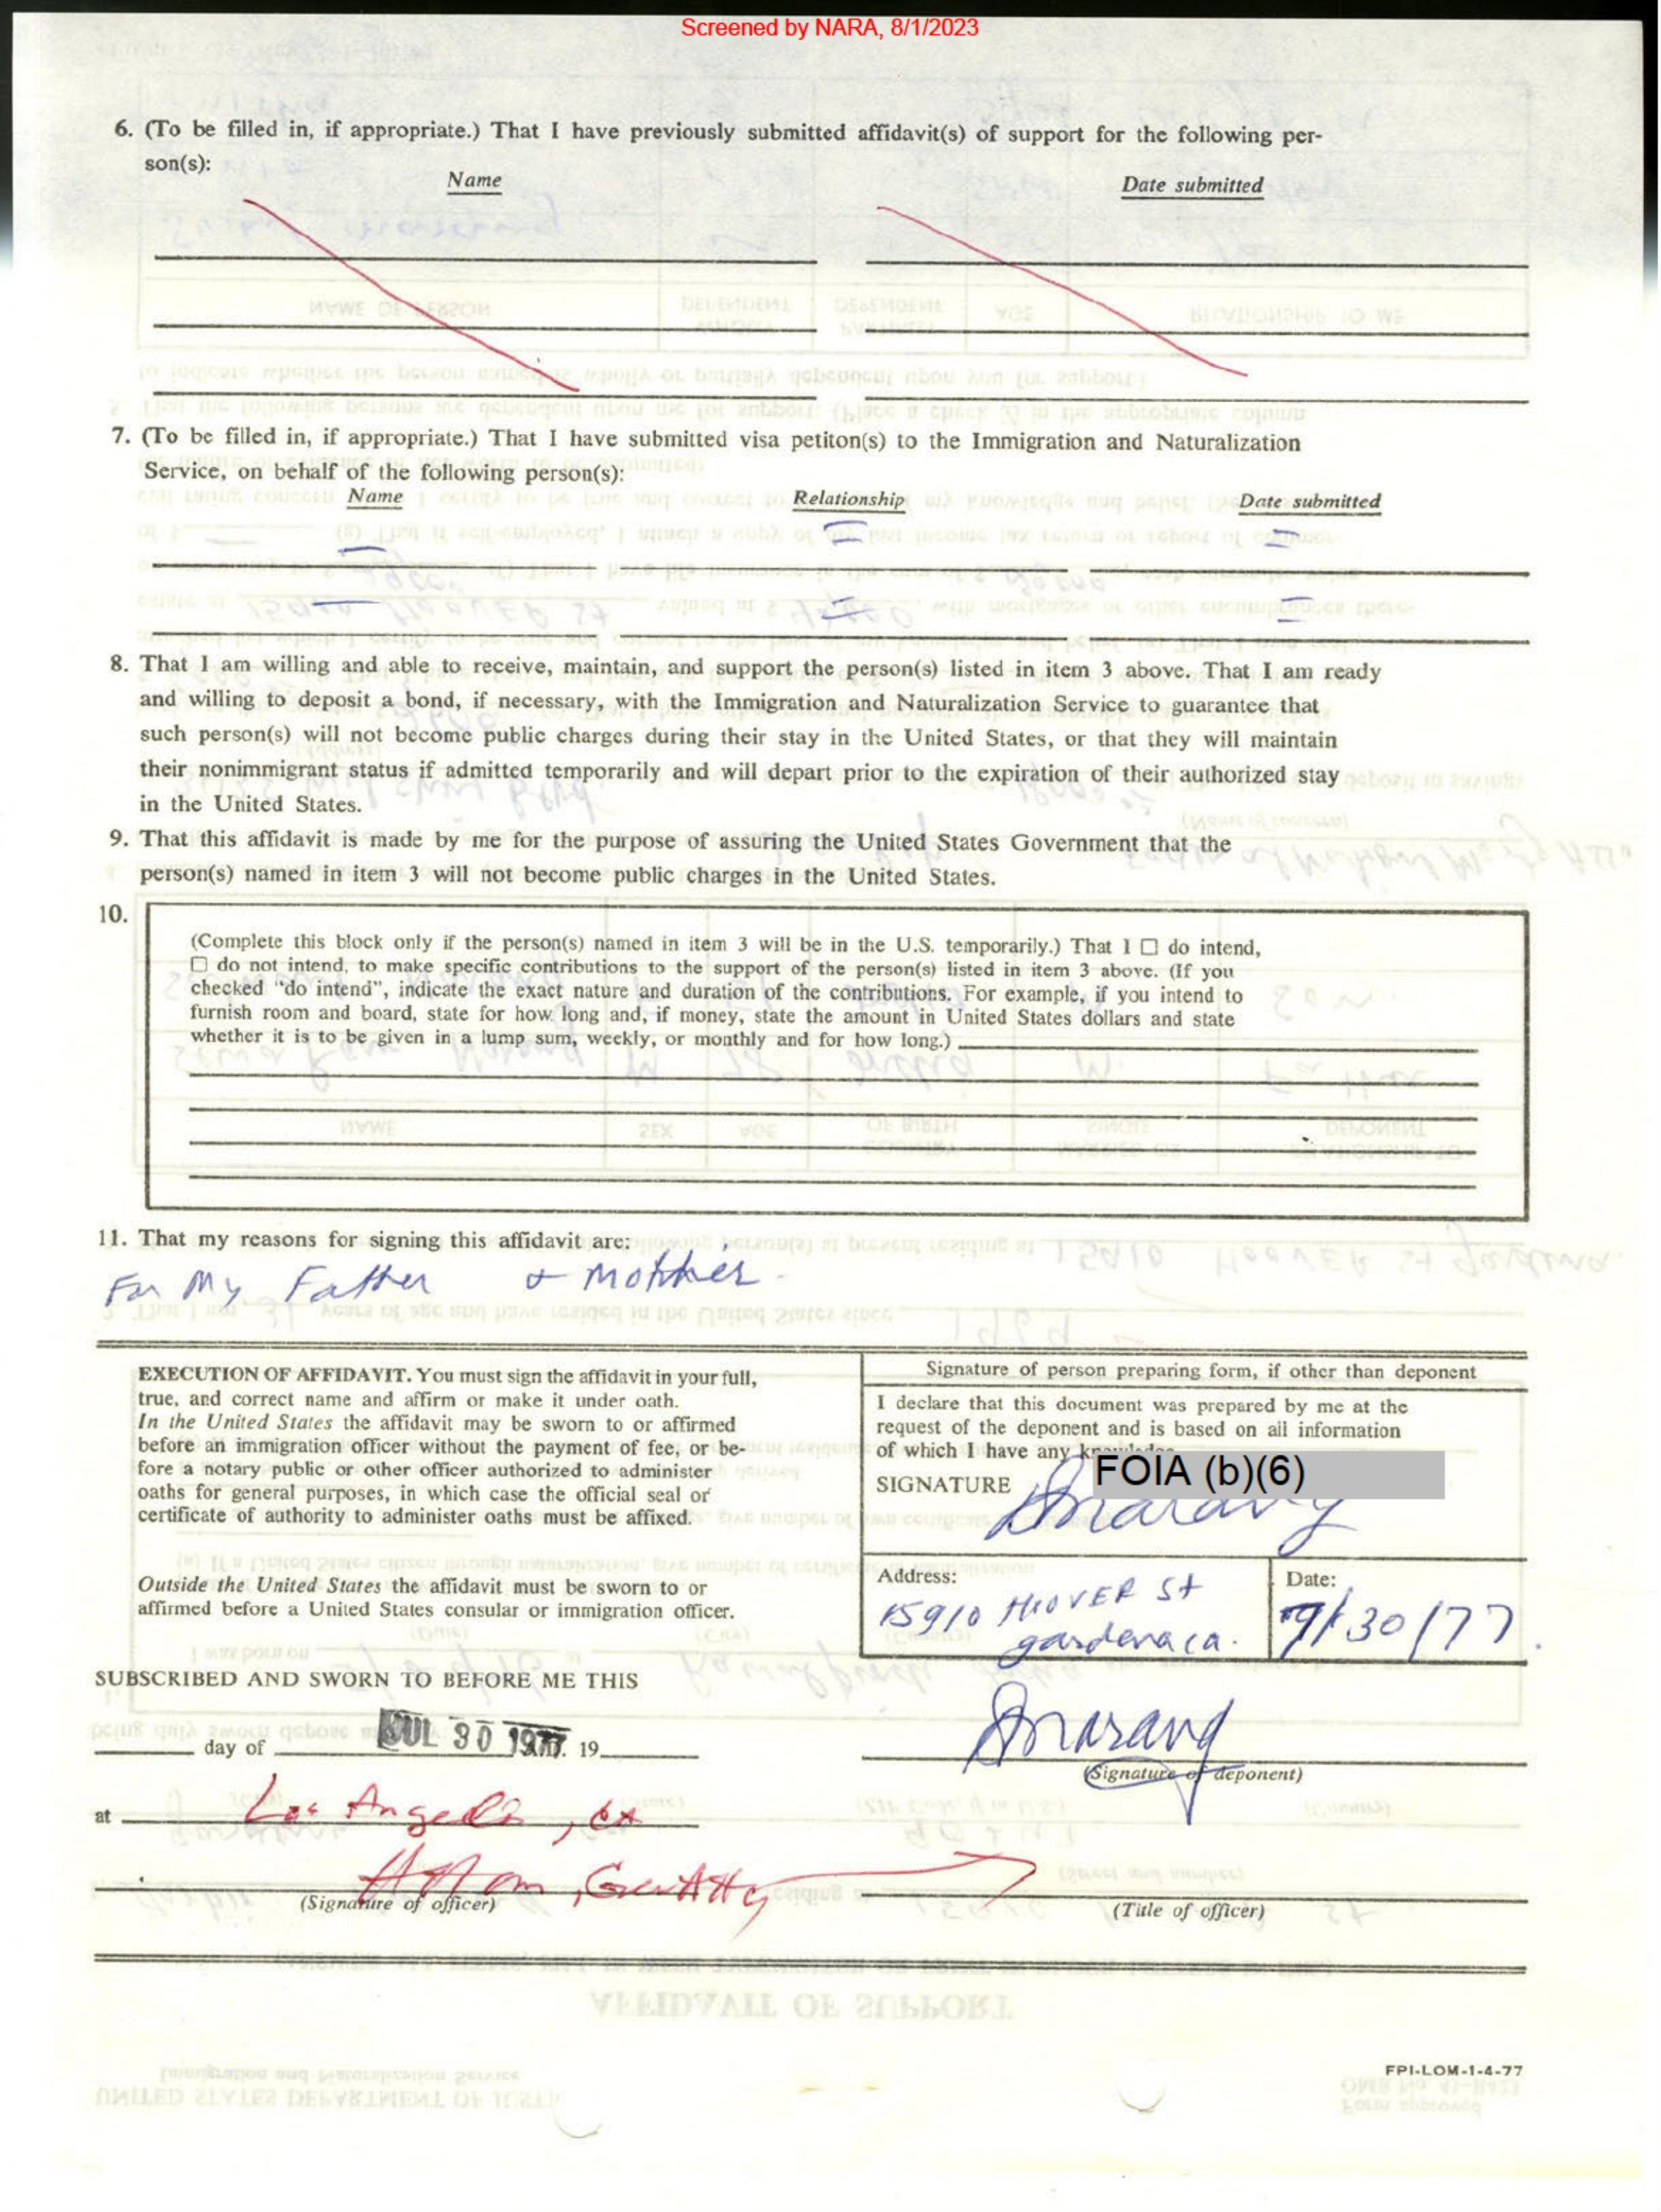 Screened by NARA, 8/1/2023
6. (To be filled in, if appropriate.) That I have previously submitted affidavit(s) of support for the following per-
son(s):
Name Date submitted
7. (To be filled in, if appropriate.) That I have submitted visa petiton(s) to the Immigration and Naturalization
Service, on behalf of the following person(s):
Name Relationship Date submitted
8. That I am willing and able to receive, maintain, and support the person(s) listed in item 3 above. That I am ready
and willing to deposit a bond, if necessary, with the Immigration and Naturalization Service to guarantee that
such person(s) will not become public charges during their stay in the United States, or that they will maintain
their nonimmigrant status if admitted temporarily and will depart prior to the expiration of their authorized stay
in the United States.
9. That this affidavit is made by me for the purpose of assuring the United States Government that the
person(s) named in item 3 will not become public charges in the United States.
10.
(Complete this block only if the person(s) named in item 3 will be in the U.S. temporarily.) That I ☐ do intend,
☐ do not intend, to make specific contributions to the support of the person(s) listed in item 3 above. (If you
checked "do intend", indicate the exact nature and duration of the contributions. For example, if you intend to
furnish room and board, state for how long and, if money, state the amount in United States dollars and state
whether it is to be given in a lump sum, weekly, or monthly and for how long.)
11. That my reasons for signing this affidavit are:
For My Father & Mother -
EXECUTION OF AFFIDAVIT. You must sign the affidavit in your full,
true, and correct name and affirm or make it under oath.
In the United States the affidavit may be sworn to or affirmed
before an immigration officer without the payment of fee, or be-
fore a notary public or other officer authorized to administer
oaths for general purposes, in which case the official seal or
certificate of authority to administer oaths must be affixed.
Outside the United States the affidavit must be sworn to or
affirmed before a United States consular or immigration officer.
Signature of person preparing form, if other than deponent
I declare that this document was prepared by me at the
request of the deponent and is based on all information
of which I have any knowledge
FOIA (b)(6)
SIGNATURE
Address:
15910 HOOVER St
gardena ca.
Date:
7/30/77.
SUBSCRIBED AND SWORN TO BEFORE ME THIS
day of JUL 30 1977. 19
Narang
(Signature of deponent)
at Los Angeles, CA
(Signature of officer) (Title of officer)
FPI-LOM-1-4-77